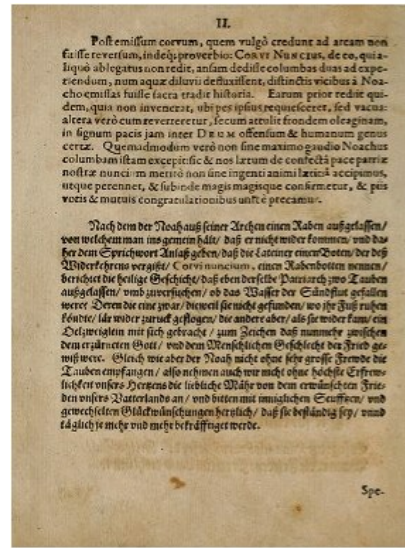 II.
Post emissum corvum, quem vulgò credunt ad arcam non
fuisse reversum, indeq; proverbio: CORVI NUNCIUS, de eo, qui a-
liquò ablegatus non redit, ansam dedisse columbas duas ad expe-
riendum, num aquæ diluvii defluxissent, distinctis vicibus à Noa-
cho emissas fuisse sacra tradit historia. Earum prior rediit qui-
dem, quia non invenerat, ubi pes ipsius requiesceret, sed vacua:
altera verò cum reverreretur, secum attulit frondem oleaginam,
in signum pacis jam inter DEUM offensum & humanum genus
certæ. Quemadmodum verò non sine maximo gaudio Noachus
columbam istam excepit: sic & nos lætum de confectâ pace patriæ
nostræ nuncium meritò non sine ingenti animi lætitiâ accipimus,
utque perennet, & subinde magis magisque confirmetur, & piis
votis & mutuis congratulationibus unicè precamur.
Nach dem der Noah auß seiner Archen einen Raben außgelassen/
von welchem man ins gemein hält/ daß er nicht wider kommen/ und da-
her dem Sprichwort Anlaß geben/ daß die Lateiner einen Boten/ der deß
Widerkehrens vergißt/ Corvi nuncium, einen Rabenbotten nennen/
berichtet die heilige Geschicht/ daß eben derselbe Patriarch zwo Tauben
außgelassen/ umb zuversuchen/ ob das Wasser der Sündflut gefallen
were: Deren die eine zwar/ dieweil sie nicht gefunden/ wo ihr Fuß ruhen
köndte/ lär wider zurück geflogen/ die andere aber/ als sie wider kam/ ein
Oelzweiglein mit sich gebracht/ zum Zeichen daß nunmehr zwischen
dem erzürneten Gott/ und dem Menschlichen Geschlecht der Fried ge-
wiß were. Gleich wie aber der Noah nicht ohne sehr grosse Frewde die
Tauben empfangen/ also nehmen auch wir nicht ohne höchste Erfrew-
lichkeit unsers Hertzens die liebliche Mähr von dem erwünschten Frie-
den unsers Vatterlands an/ und bitten mit inniglichen Seufftzen/ und
gewechselten Glückwünschungen hertzlich/ daß sie beständig sey/ unnd
täglich je mehr und mehr bekräfftiget werde.
Spe-